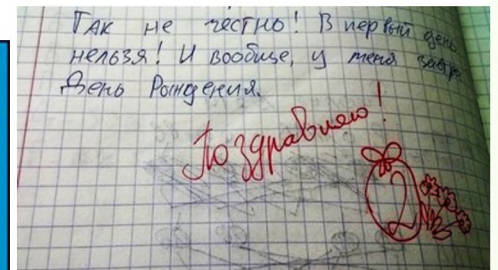 Так не честно! В первый день
нельзя! И вообще, у меня завтра
День Рождения.
Поздравляю!
2